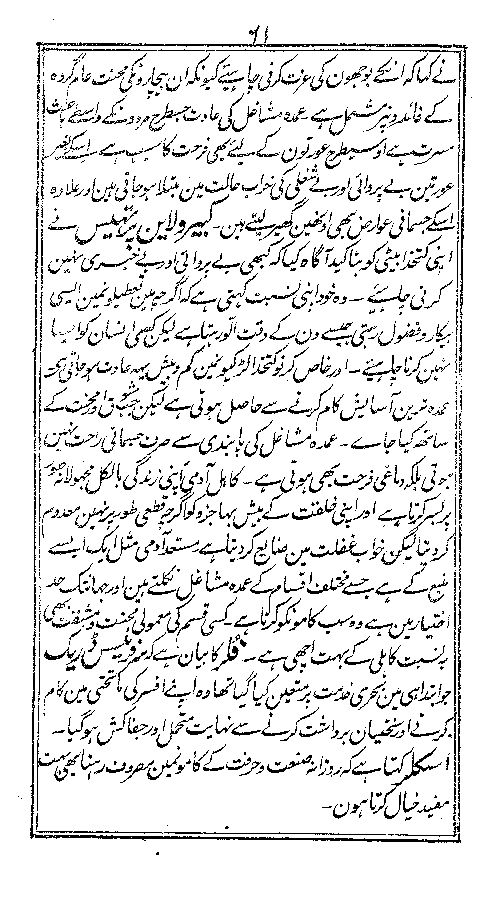 ۶۱
نے کہا کہ انکے بوجھون کی عزت کرنی چاہیئے کیونکہ ان بیچارونکی محنت عام گروہ
کے فائدونپر مشتمل ہے عمدہ مشاغل کی عادت جسطرح مردونکے واسطے باعث
مسرت ہے اوسیطرح عورتون کے لیئے بھی فرحت کا سبب ہے اسکے بغیر
عورتین بے پروائی اور بے شغلی کی خراب حالت مین مبتلا ہو جاتی ہین اور علاوہ
اسکے جسمانی عوارض بھی اونھین گھیر لیتے ہین۔ کیپرولاین پرتھیس نے
اپنی کتخدا بیٹی کو بتاکید آگاہ کیا کہ کبھی بے پروائی اور بے خبری نہین
کرنی چاہیئے۔ وہ خود اپنی نسبت کہتی ہے کہ اگرچہ مین تعطیلونمین ایسی
بیکار و فضول رہتی جیسے دن کے وقت الّو رہتا ہے لیکن کسی انسان کو ایسا
نہین کرنا چاہیئے۔ اور خاص کر نوکتخدا لڑکیونمین کم و بیش یہہ عادت ہو جاتی ہے
عمدہ ترین آسایش کام کرنے سے حاصل ہوتی ہے لیکن جب شوق اور محنت کے
ساتھہ کیا جاے۔ عمدہ مشاغل کی پابندی سے صرف جسمانی راحت نہین
ہوتی بلکہ دماغی فرحت بھی ہوتی ہے۔ کاہل آدمی اپنی زندگی بالکل مجہولانہ طور
پر بسر کرتا ہے اور اپنی خلقت کے بیش بہا جزو کو اگرچہ قطعی طور پر نہین معدوم
کر دیتا لیکن خواب غفلت مین ضایع کر دیتا ہے مستعد آدمی مثل ایک ایسے
منبع کے ہے جس سے مختلف اقسام کے عمدہ مشاغل نکلتے ہین اور جہانتک حد
اختیار مین ہے وہ سب کامونکو کرتا ہے کسی قسم کی معمولی محنت و مشقت بھی
بہ نسبت کاہلی کے بہت اچھی ہے۔ فلر کا بیان ہے کہ سر فرینسس ڈریک
جو ابتدا ہی مین بحری خدمت پر متعین کیا گیا تھا وہ اپنے افسر کی ماتحتی مین کام
کرنے اور سختیان برداشت کرنے سے نہایت متحمل اور جفاکش ہو گیا۔
اسکلر کہتا ہے کہ روزانہ صنعت و حرفت کے کامونمین مصروف رہنا بھی بہت
مفید خیال کرتا ہون۔